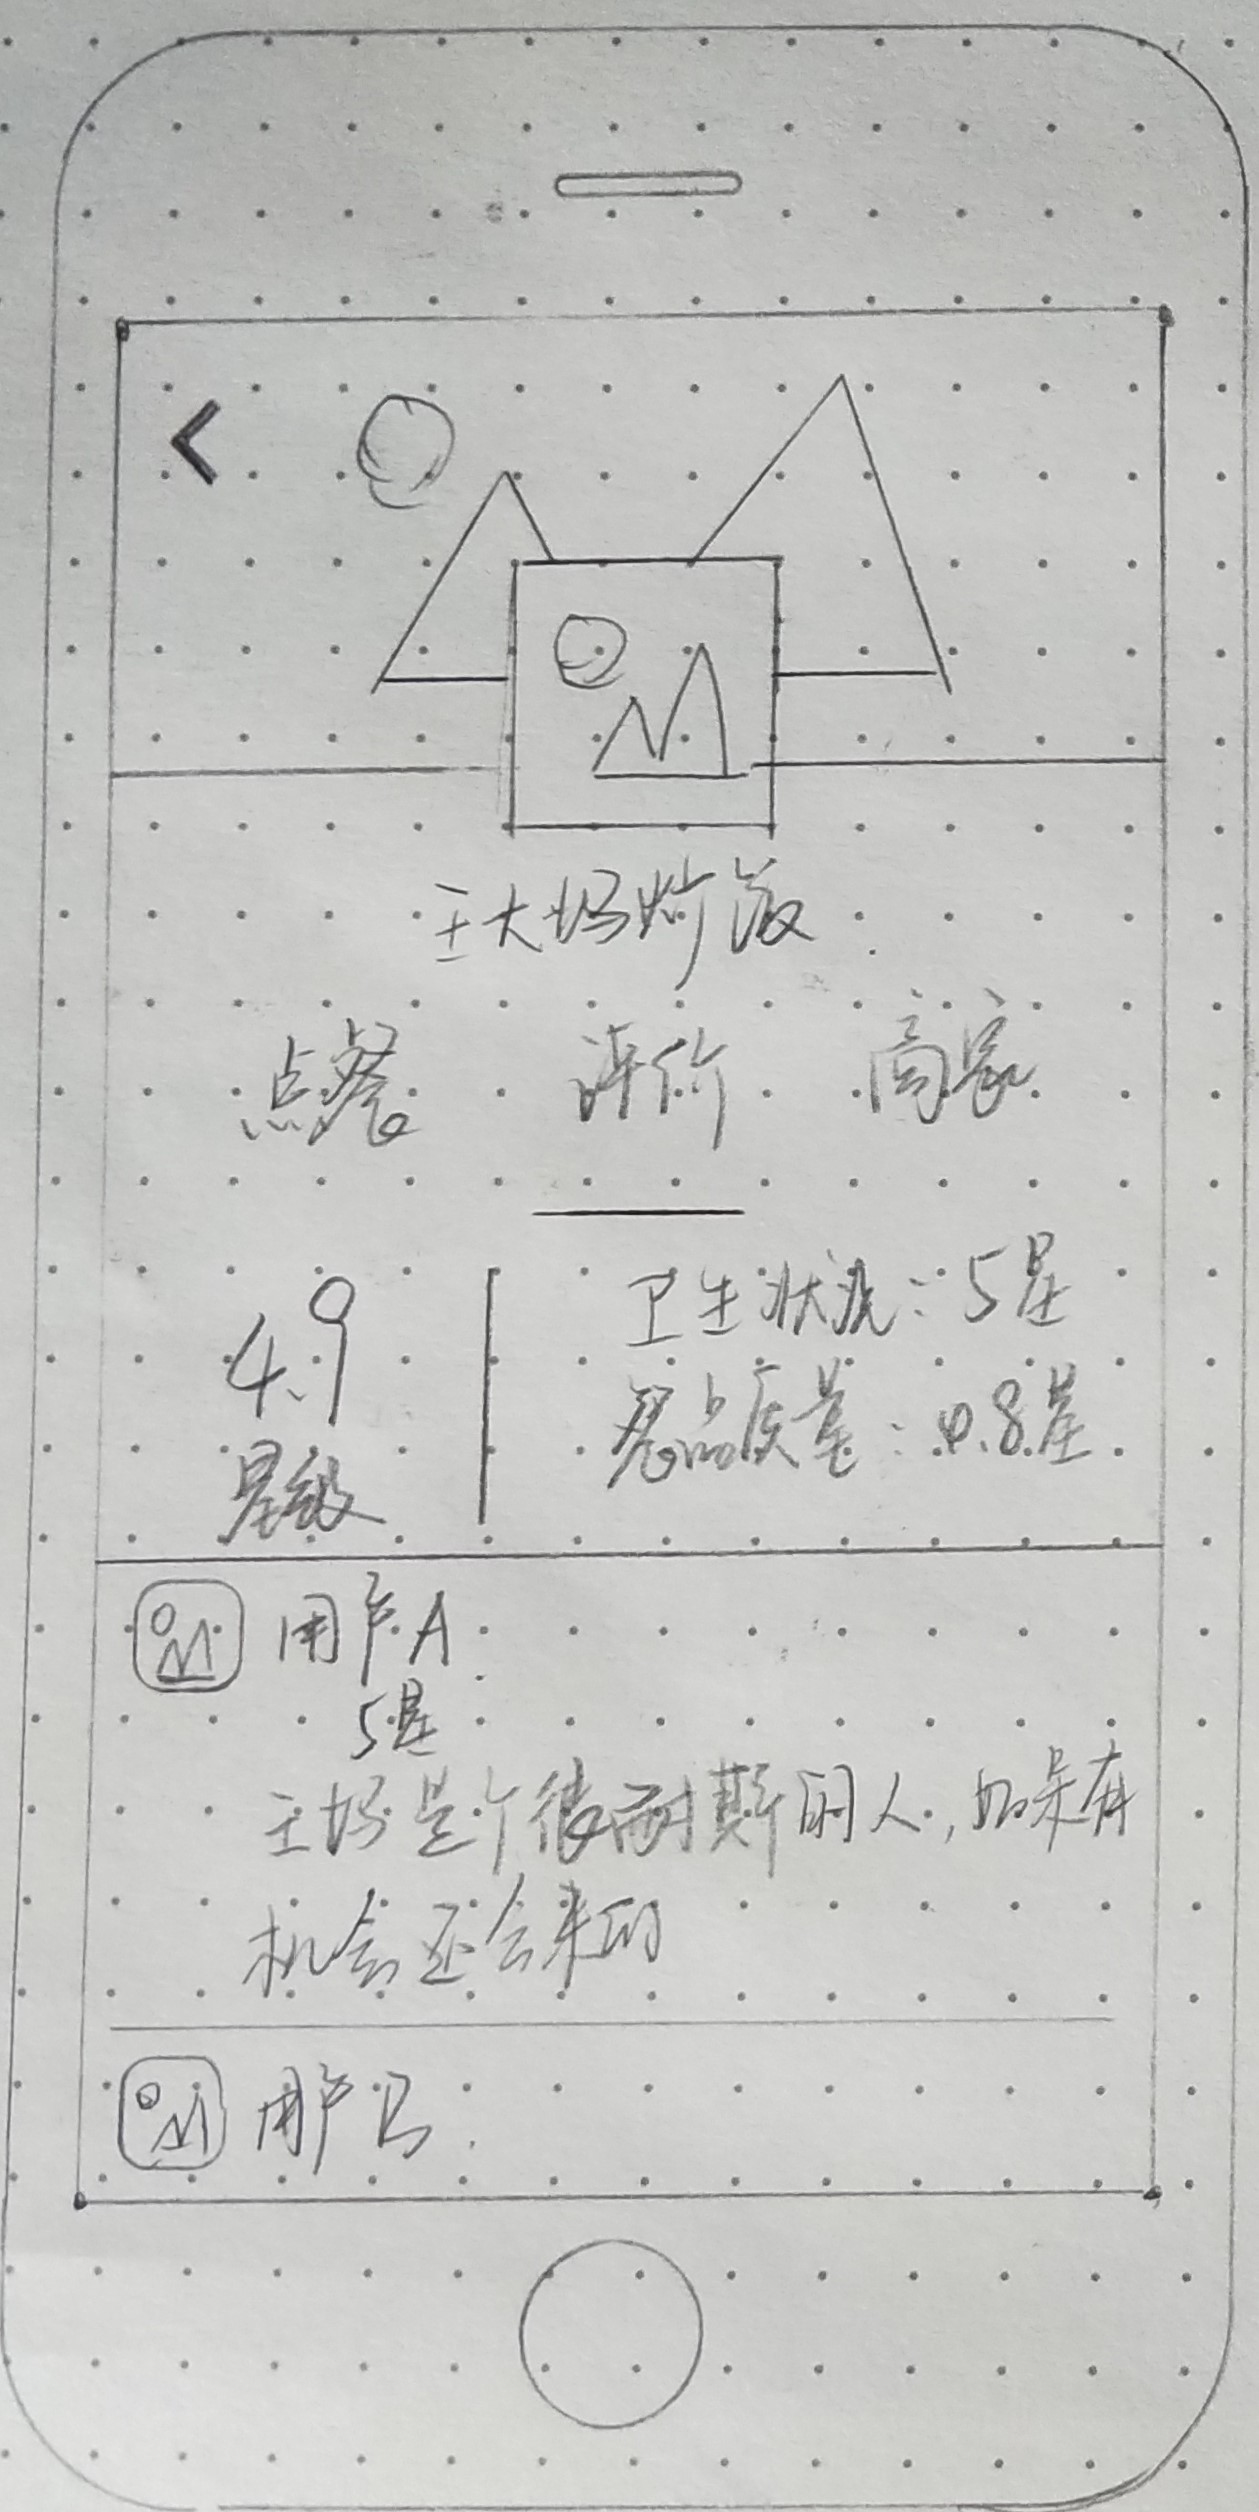 王大妈炒饭
点餐 评价 商家
4.9
星级
卫生状况：5星
餐品质量：4.8星
用户A
5星
王妈是个很耐斯的人，如果有
机会还会来的
用户B